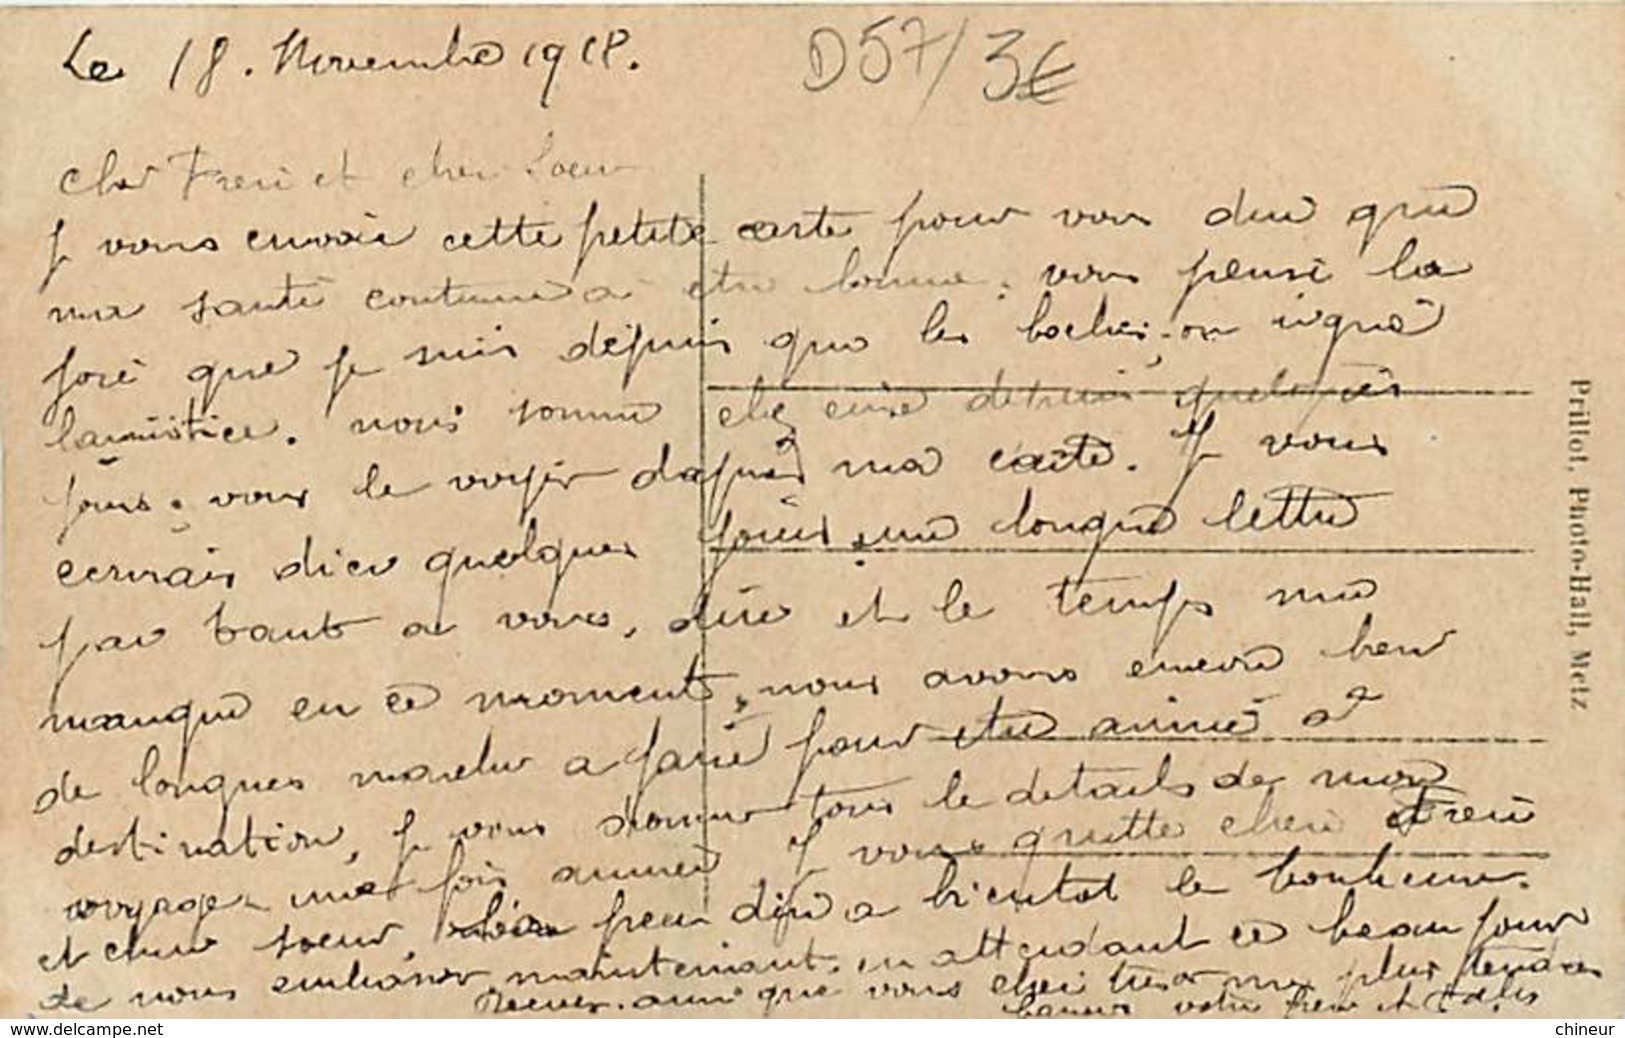 Le 18. Novembre 1918.
D57/3€
Cher Frere et cher Soeur
J vous envoie cette petite carte pour vous dire que
ma santé continue a etre bonne. vous pensé la
joré que je suis dépuis que les boches on signé
larmistice. nous somme chez eux depuis quelques
jours. vous le voyer dapres ma carte. J vous
ecrirais dici quelques jours une longue lettre
par tant a vous dire et le temps me
manque en ce moment, nous avons encore bien
de longues marche a faire pour etre arrivé a
destination, J vous donner tous le details de mon
voyage une fois arrivé J vous quitte cher Frere
et cher soeur, peu dire a bientot le bonheur.
de nous embrasser maintenant. en attendant ce beau jour
Recever. ainsi que vous cher mes plus tendres
baisers votre frere et
Prillot, Photo-Hall, Metz
www.delcampe.net
chineur